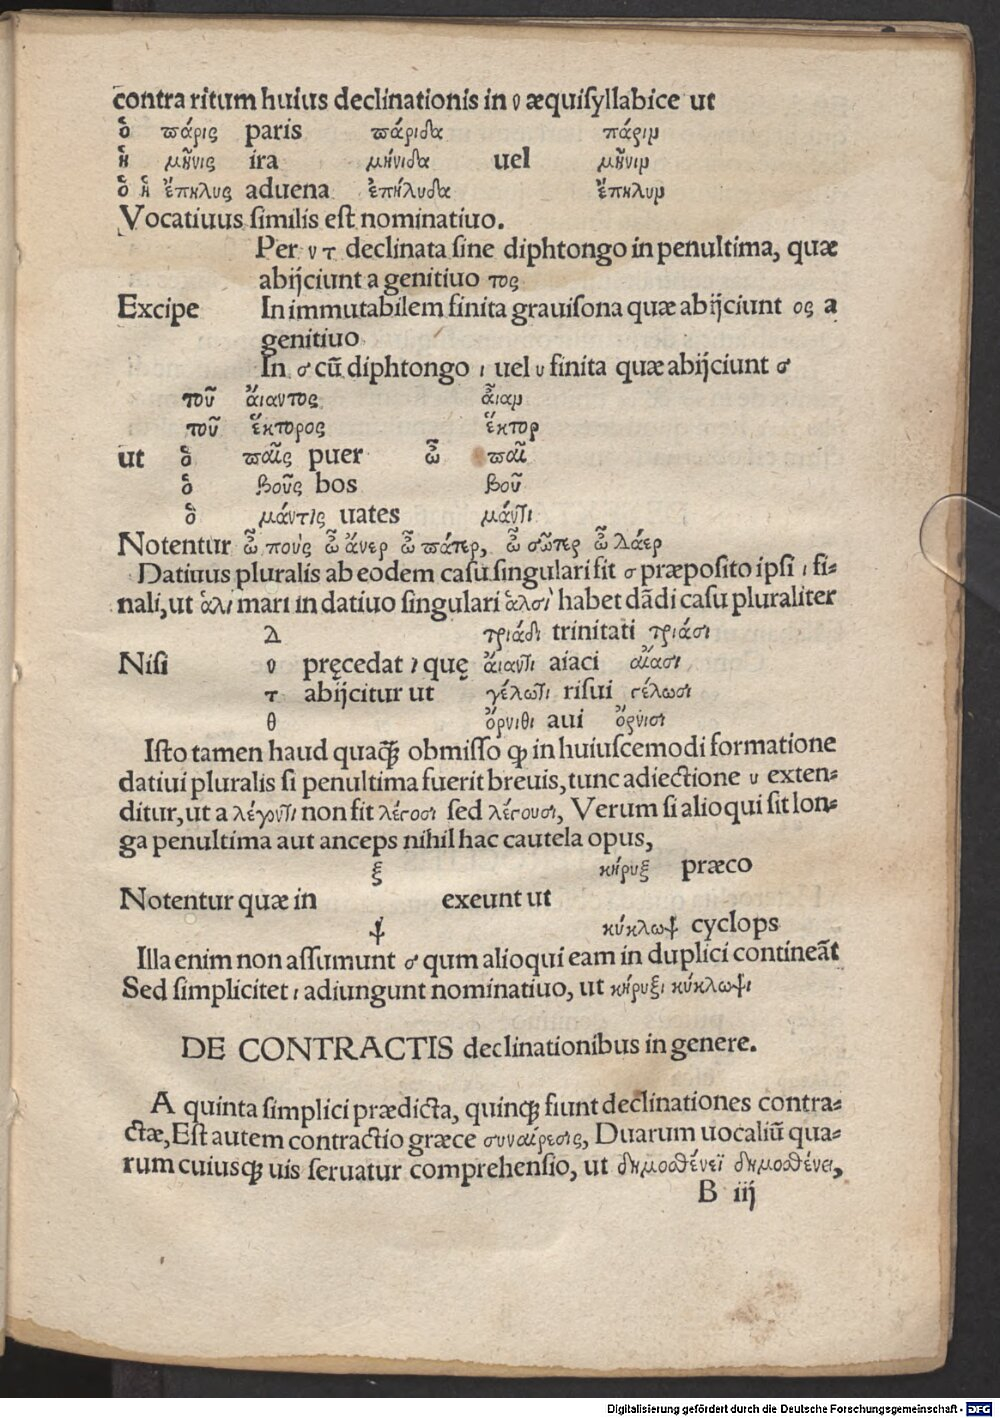 contra ritum huius declinationis in ν æquiſyllabice ut
ὁ πάρις paris πάριδα πάριν
ἡ μῆνις ira μήνιδα uel μῆνιν
ὁ ἡ ἔπηλυς aduena ἐπήλυδα ἔπηλυν
Vocatiuus ſimilis eſt nominatiuo.
Per ν τ declinata ſine diphtongo in penultima, quæ
abijciunt a genitiuo τος
Excipe In immutabilem finita grauiſona quæ abijciunt ος a
genitiuo
In σ cū diphtongo ι uel υ finita quæ abijciunt σ
τοῦ ἄιαντος ἆιαν
τοῦ ἕκτορος ἕκτορ
ut ὁ παῖς puer ὦ παῖ
ὁ βοῦς bos βοῦ
ὁ μάντις uates μάντι
Notentur ὦ πούς ὦ ἄνερ ὦ πάτερ, ὦ σῶτερ ὦ δάερ
Datiuus pluralis ab eodem caſu ſingulari fit σ præpoſito ipſi ι fi-
nali, ut ἁλὶ mari in datiuo ſingulari ἁλσὶ habet dādi caſu pluraliter
Δ τριάδι trinitati τριάσι
Niſi ν pręcedat ι quę ἄιαντι aiaci αἴασι
τ abijcitur ut γέλωτι riſui γέλωσι
θ ὄρνιθι aui ὄρνισι
Iſto tamen haud quaꝗ̃ obmiſſo ꝙ in huiuſcemodi formatione
datiui pluralis ſi penultima fuerit breuis, tunc adiectione υ exten-
ditur, ut a λέγοντι non fit λέγοσι ſed λέγουσι, Verum ſi alioqui ſit lon-
ga penultima aut anceps nihil hac cautela opus,
ξ κήρυξ præco
Notentur quæ in exeunt ut
ψ κύκλωψ cyclops
Illa enim non aſſumunt σ qum alioqui eam in duplici contineāt
Sed ſimplicitet ι adiungunt nominatiuo, ut κήρυξι κύκλωψι
DE CONTRACTIS declinationibus in genere.
A quinta ſimplici prædicta, quinqꝫ fiunt declinationes contra-
ctæ, Eſt autem contractio græce συναίρεσις, Duarum uocaliū qua-
rum cuiusqꝫ uis ſeruatur comprehenſio, ut δημοσθένεϊ δημοσθένει,
B iij
Digitalisierung gefördert durch die Deutsche Forschungsgemeinschaft - DFG